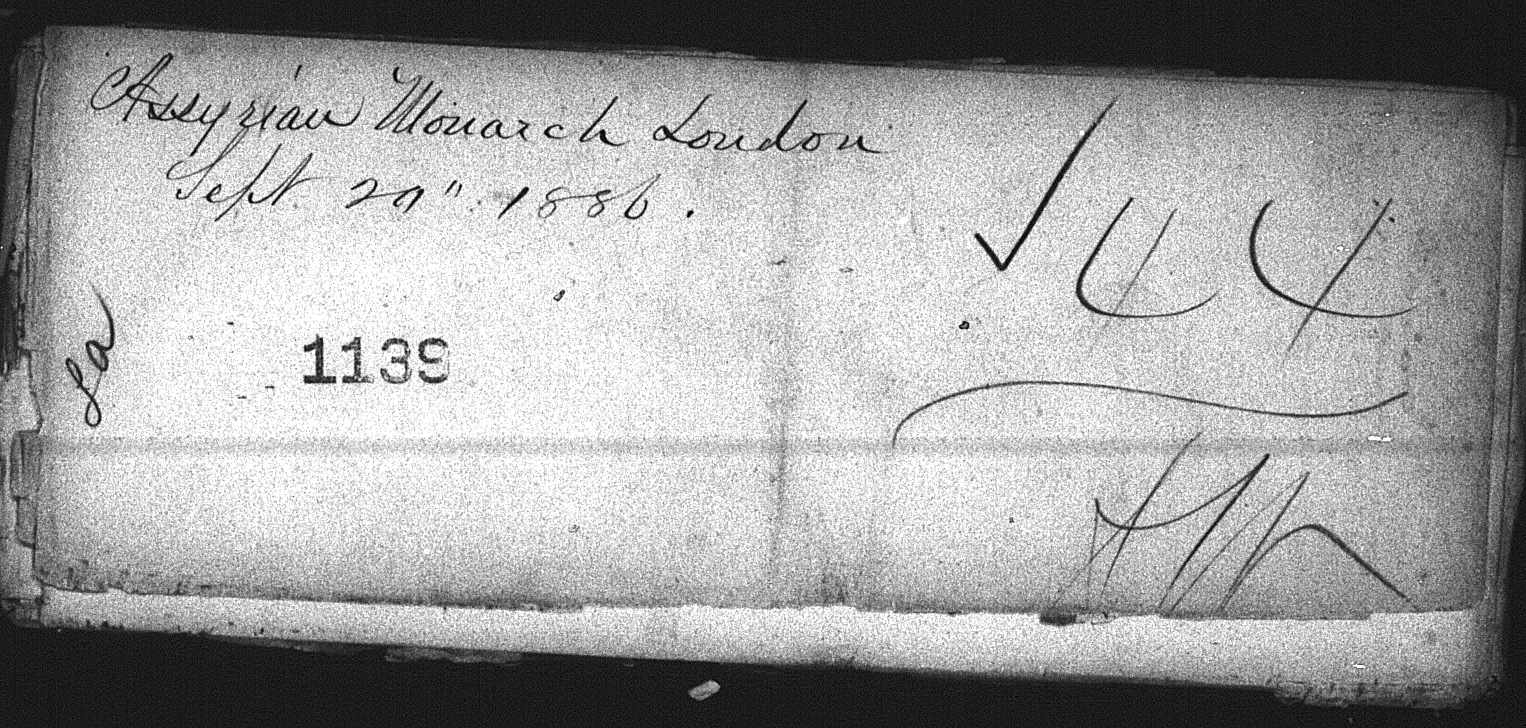 Assyrian Monarch London
Sept 20" 1886.
✓44
1139